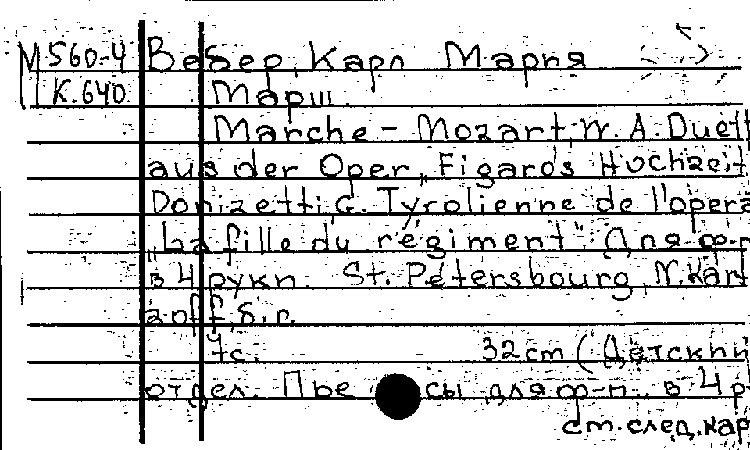 М560-4 Вебер, Карл Мария
К.640 Марш.
Marche - Mozart, W. A. Duett
aus der Oper „Figaro's Hochzeit
Donizetti, G. Tyrolienne de l'opera
„La fille du régiment". Для ф-п
в 4 руки. St. Petersbourg, N.
s.a.
4с. 32cm (Детский
отдел. Пьесы для ф-п. в 4 р
см. след. кар